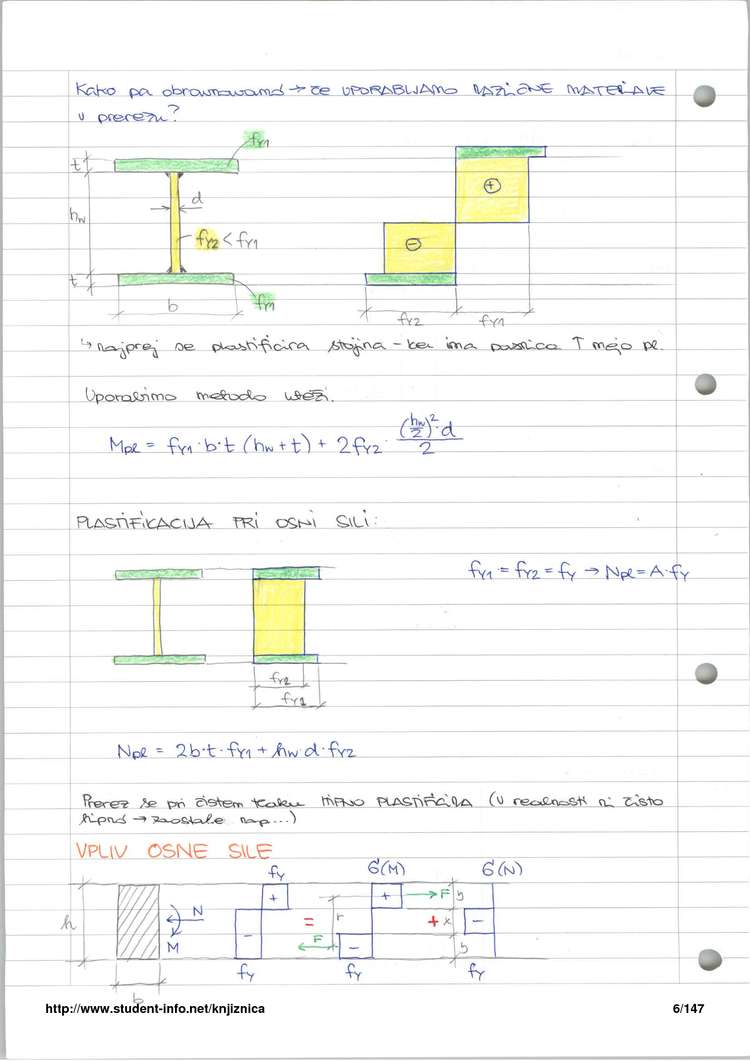 Kako pa obravnavamo → če UPORABLJAMO RAZLIČNE MATERIALE
v prerezu?
fy1
t
d
hw
fy2 < fy1
t
b
fy1
+
−
fy2
fy1
↳ najprej se plastificira stojina – ker ima pasnica ↑ mejo pl.
Uporabimo metodo težišč.
Mpl = fy1·b·t (hw+t) + 2fy2 · (hw/2)²·d / 2
PLASTIFIKACIJA PRI OSNI SILI:
fy1 = fy2 = fy → Npl = A·fy
fy2
fy1
Npl = 2b·t·fy1 + hw·d·fy2
Prerez se pri čistem tlaku HIPNO PLASTIFICIRA (v realnosti ni čisto
hipno → zaostale nap...)
VPLIV OSNE SILE
fy σ(M) σ(N)
h
N
M
+
−
=
r
F
+
−
F
y
+ x
−
y
fy fy fy
b
http://www.student-info.net/knjiznica 6/147